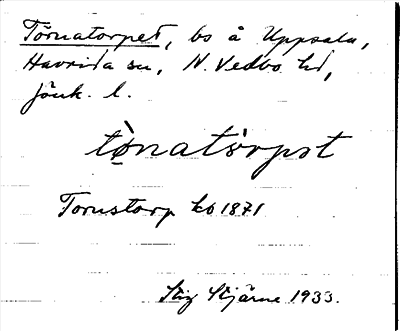 Törnatorpet, bs å Uppsala,
Haurida sn, N. Vedbo hd,
Jönk. l.
tö̀natòrpət
Tornstorp kb 1871
Stig Stjärne 1933.